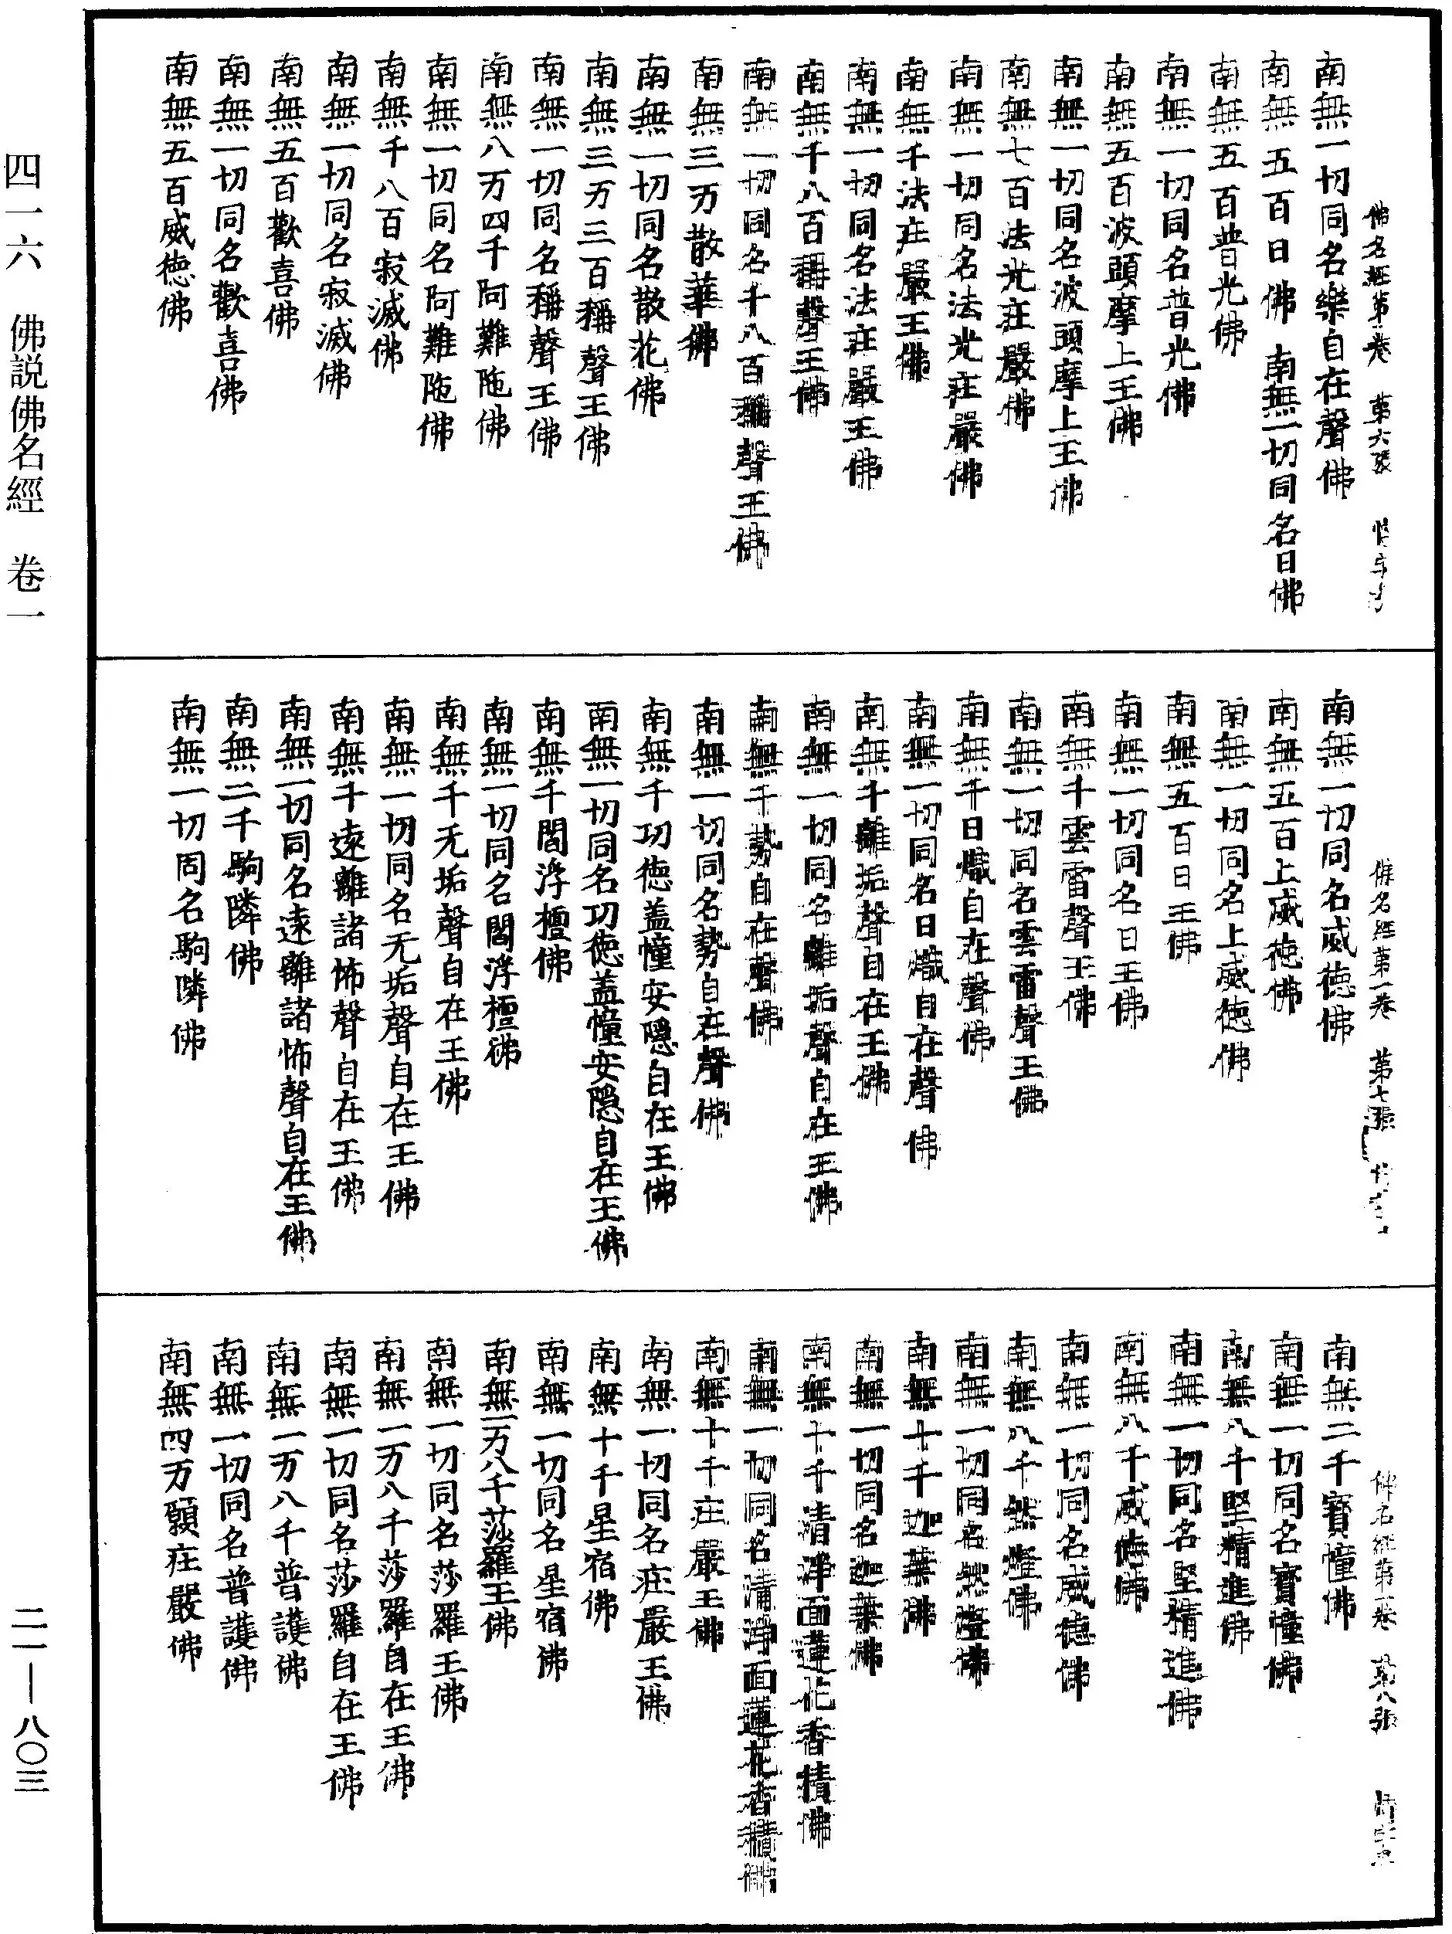 佛名經第一卷 第六張
南無一切同名樂自在聲佛
南無五百日佛 南無一切同名日佛
南無五百普光佛
南無一切同名普光佛
南無五百波頭摩上王佛
南無一切同名波頭摩上王佛
南無七百法光莊嚴佛
南無一切同名法光莊嚴佛
南無千法莊嚴王佛
南無一切同名法莊嚴王佛
南無千八百稱聲王佛
南無一切同名千八百稱聲王佛
南無三万散華佛
南無一切同名散花佛
南無三万三百稱聲王佛
南無一切同名稱聲王佛
南無八万四千阿難陁佛
南無一切同名阿難陁佛
南無千八百寂滅佛
南無一切同名寂滅佛
南無五百歡喜佛
南無一切同名歡喜佛
南無五百威德佛
佛名經第一卷 第七張
南無一切同名威德佛
南無五百上威德佛
南無一切同名上威德佛
南無五百日王佛
南無一切同名日王佛
南無千雲雷聲王佛
南無一切同名雲雷聲王佛
南無千日熾自在聲佛
南無一切同名日熾自在聲佛
南無千離垢聲自在王佛
南無一切同名離垢聲自在王佛
南無千勢自在聲佛
南無一切同名勢自在聲佛
南無千功德盖幢安隱自在王佛
南無一切同名功德盖幢安隱自在王佛
南無千閻浮檀佛
南無一切同名閻浮檀佛
南無千无垢聲自在王佛
南無一切同名无垢聲自在王佛
南無千遠離諸怖聲自在王佛
南無一切同名遠離諸怖聲自在王佛
南無二千駒隣佛
南無一切同名駒隣佛
佛名經第一卷 第八張
南無二千寶幢佛
南無一切同名寶幢佛
南無八千堅精進佛
南無一切同名堅精進佛
南無八千威德佛
南無一切同名威德佛
南無八千然燈佛
南無一切同名然燈佛
南無十千迦葉佛
南無一切同名迦葉佛
南無十千清淨面蓮花香積佛
南無一切同名清淨面蓮花香積佛
南無十千莊嚴王佛
南無一切同名莊嚴王佛
南無十千星宿佛
南無一切同名星宿佛
南無一万八千莎羅王佛
南無一切同名莎羅王佛
南無一万八千莎羅自在王佛
南無一切同名莎羅自在王佛
南無一万八千普護佛
南無一切同名普護佛
南無四万願莊嚴佛
四一六 佛説佛名經 卷一
二一—八〇三